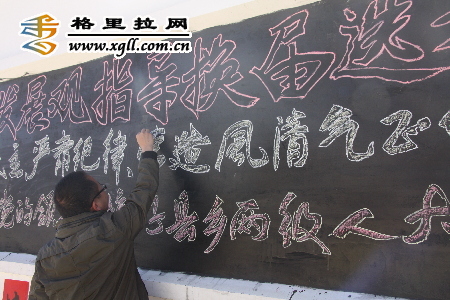 格里拉网
www.xgll.com.cn
发展观指导换届选
主,严肃纪律,营造风清气正
县乡两级人